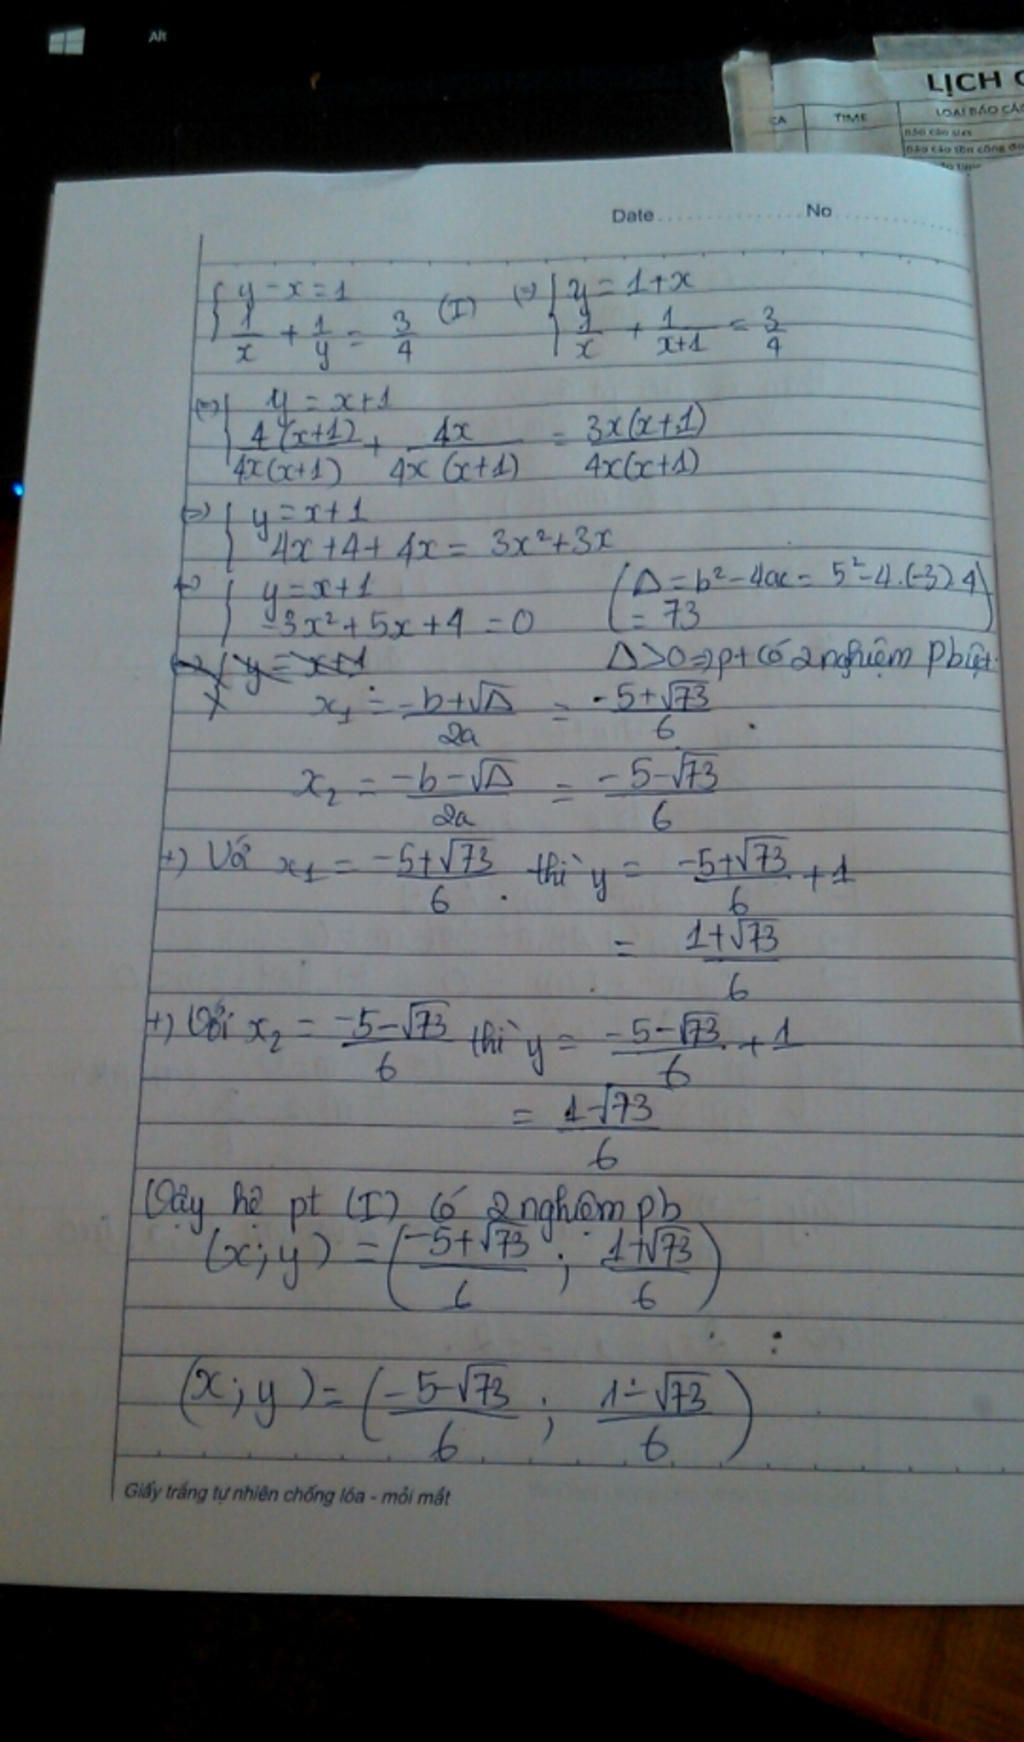 Alt
LỊCH
CA TIME LOẠI BÁO CÁO
Date No
{ y - x = 1
1/x + 1/y = 3/4 (I) (=) { y = 1 + x
1/x + 1/(x+1) = 3/4
(=) { y = x+1
4(x+1)/4x(x+1) + 4x/4x(x+1) = 3x(x+1)/4x(x+1)
(=) { y = x+1
4x + 4 + 4x = 3x² + 3x
(=) { y = x+1
-3x² + 5x + 4 = 0
(Δ = b² - 4ac = 5² - 4.(-3).4
= 73)
y = x+1
Δ > 0 => pt có 2 nghiệm pbiệt.
x₁ = (-b+√Δ)/2a = (-5+√73)/6
x₂ = (-b-√Δ)/2a = (-5-√73)/6
+) Với x₁ = (-5+√73)/6 thì y = (-5+√73)/6 + 1
= (1+√73)/6
+) Với x₂ = (-5-√73)/6 thì y = (-5-√73)/6 + 1
= (1-√73)/6
Vậy hệ pt (I) có 2 nghiệm pb
(x; y) = ((-5+√73)/6 ; (1+√73)/6)
(x; y) = ((-5-√73)/6 ; (1-√73)/6)
Giấy trắng tự nhiên chống lóa - mỏi mắt